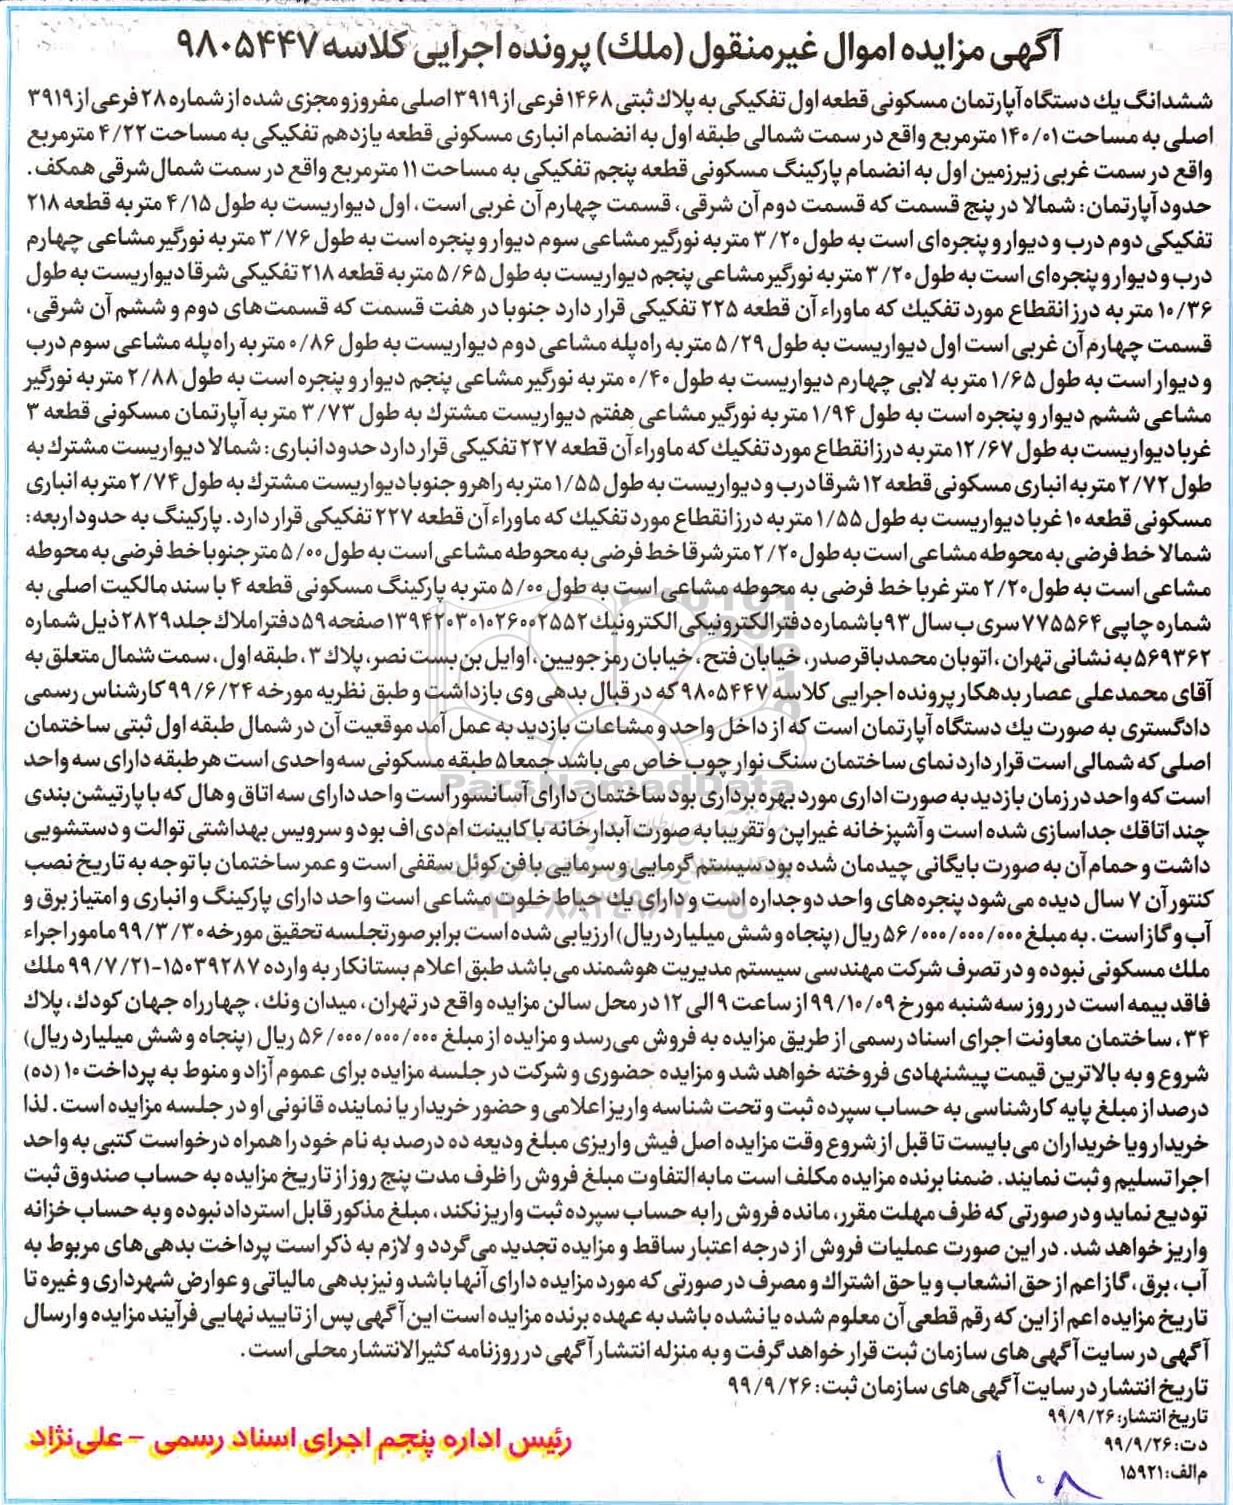 آگهی مزایده اموال غیرمنقول (ملك) پرونده اجرایی کلاسه ۹۸۰۵۴۴۷
ششدانگ یك دستگاه آپارتمان مسکونی قطعه اول تفکیکی به پلاك ثبتی ۱۴۶۸ فرعی از ۳۹۱۹ اصلی مفروز و مجزی شده از شماره ۲۸ فرعی از ۳۹۱۹
اصلی به مساحت ۱۴۰/۰۱ مترمربع واقع در سمت شمالی طبقه اول به انضمام انباری مسکونی قطعه یازدهم تفکیکی به مساحت ۴/۲۲ مترمربع
واقع در سمت غربی زیرزمین اول به انضمام پارکینگ مسکونی قطعه پنجم تفکیکی به مساحت ۱۱ مترمربع واقع در سمت شمال‌شرقی همکف.
حدود آپارتمان: شمالا در پنج قسمت که قسمت دوم آن شرقی، قسمت چهارم آن غربی است، اول دیواریست به طول ۴/۱۵ متر به قطعه ۲۱۸
تفکیکی دوم درب و دیوار و پنجره‌ای است به طول ۳/۲۰ متر به نورگیر مشاعی سوم دیوار و پنجره است به طول ۳/۷۶ متر به نورگیر مشاعی چهارم
درب و دیوار و پنجره‌ای است به طول ۳/۲۰ متر به نورگیر مشاعی پنجم دیواریست به طول ۵/۶۵ متر به قطعه ۲۱۸ تفکیکی شرقا دیواریست به طول
۱۰/۳۶ متر به درز انقطاع مورد تفکیك که ماوراء آن قطعه ۲۲۵ تفکیکی قرار دارد جنوبا در هفت قسمت که قسمت‌های دوم و ششم آن شرقی،
قسمت چهارم آن غربی است اول دیواریست به طول ۵/۲۹ متر به راه‌پله مشاعی دوم دیواریست به طول ۰/۸۶ متر به راه‌پله مشاعی سوم درب
و دیوار است به طول ۱/۶۵ متر به لابی چهارم دیواریست به طول ۰/۴۰ متر به نورگیر مشاعی پنجم دیوار و پنجره است به طول ۲/۸۸ متر به نورگیر
مشاعی ششم دیوار و پنجره است به طول ۱/۹۴ متر به نورگیر مشاعی هفتم دیواریست مشترك به طول ۳/۷۳ متر به آپارتمان مسکونی قطعه ۳
غربا دیواریست به طول ۱۲/۶۷ متر به درز انقطاع مورد تفکیك که ماوراء آن قطعه ۲۲۷ تفکیکی قرار دارد حدود انباری: شمالا دیواریست مشترك به
طول ۲/۷۲ متر به انباری مسکونی قطعه ۱۲ شرقا درب و دیواریست به طول ۱/۵۵ متر به راهرو جنوبا دیواریست مشترك به طول ۲/۷۴ متر به انباری
مسکونی قطعه ۱۰ غربا دیواریست به طول ۱/۵۵ متر به درز انقطاع مورد تفکیك که ماوراء آن قطعه ۲۲۷ تفکیکی قرار دارد. پارکینگ به حدود اربعه:
شمالا خط فرضی به محوطه مشاعی است به طول ۲/۲۰ متر شرقا خط فرضی به محوطه مشاعی است به طول ۵/۰۰ متر جنوبا خط فرضی به محوطه
مشاعی است به طول ۲/۲۰ متر غربا خط فرضی به محوطه مشاعی است به طول ۵/۰۰ متر به پارکینگ مسکونی قطعه ۴ با سند مالکیت اصلی به
شماره چاپی ۷۷۵۵۶۴ سری ب سال ۹۳ با شماره دفتر الکترونیکی الکترونیك ۱۳۹۴۲۰۳۰۱۰۲۶۰۰۲۵۵۲ صفحه ۵۹ دفتر املاك جلد ۲۸۲۹ ذیل شماره
۵۶۹۳۶۲ به نشانی تهران، اتوبان محمدباقر صدر، خیابان فتح، خیابان رمز جویین، اوایل بن‌بست نصر، پلاك ۳، طبقه اول، سمت شمال متعلق به
آقای محمدعلی عصار بدهکار پرونده اجرایی کلاسه ۹۸۰۵۴۴۷ که در قبال بدهی وی بازداشت و طبق نظریه مورخه ۹۹/۶/۲۴ کارشناس رسمی
دادگستری به صورت یك دستگاه آپارتمان است که از داخل واحد و مشاعات بازدید به عمل آمد موقعیت آن در شمال طبقه اول ثبتی ساختمان
اصلی که شمالی است قرار دارد نمای ساختمان سنگ نوار چوب خاص می‌باشد جمعا ۵ طبقه مسکونی سه واحدی است هر طبقه دارای سه واحد
است که واحد در زمان بازدید به صورت اداری مورد بهره‌برداری بود ساختمان دارای آسانسور است واحد دارای سه اتاق و هال که با پارتیشن‌بندی
چند اتاقك جداسازی شده است و آشپزخانه غیراپن و تقریبا به صورت آبدارخانه با کابینت ام‌دی‌اف بود و سرویس بهداشتی توالت و دستشویی
داشت و حمام آن به صورت بایگانی چیدمان شده بود سیستم گرمایی و سرمایی با فن‌کوئل سقفی است و عمر ساختمان با توجه به تاریخ نصب
کنتور آن ۷ سال دیده می‌شود پنجره‌های واحد دوجداره است و دارای یك حیاط خلوت مشاعی است واحد دارای پارکینگ و انباری و امتیاز برق و
آب و گاز است. به مبلغ ۵۶/۰۰۰/۰۰۰/۰۰۰ ریال (پنجاه و شش میلیارد ریال) ارزیابی شده است برابر صورتجلسه تحقیق مورخه ۹۹/۳/۳۰ مامور اجراء
ملك مسکونی نبوده و در تصرف شرکت مهندسی سیستم مدیریت هوشمند می‌باشد طبق اعلام بستانکار به وارده ۱۵۰۳۹۲۸۷-۹۹/۷/۲۱ ملك
فاقد بیمه است در روز سه‌شنبه مورخ ۹۹/۱۰/۰۹ از ساعت ۹ الی ۱۲ در محل سالن مزایده واقع در تهران، میدان ونك، چهارراه جهان کودك، پلاك
۳۴، ساختمان معاونت اجرای اسناد رسمی از طریق مزایده به فروش می‌رسد و مزایده از مبلغ ۵۶/۰۰۰/۰۰۰/۰۰۰ ریال (پنجاه و شش میلیارد ریال)
شروع و به بالاترین قیمت پیشنهادی فروخته خواهد شد و مزایده حضوری و شرکت در جلسه مزایده برای عموم آزاد و منوط به پرداخت ۱۰ (ده)
درصد از مبلغ پایه کارشناسی به حساب سپرده ثبت و تحت شناسه واریز اعلامی و حضور خریدار یا نماینده قانونی او در جلسه مزایده است. لذا
خریدار و یا خریداران می‌بایست تا قبل از شروع وقت مزایده اصل فیش واریزی مبلغ ودیعه ده درصد به نام خود را همراه درخواست کتبی به واحد
اجرا تسلیم و ثبت نمایند. ضمنا برنده مزایده مکلف است مابه‌التفاوت مبلغ فروش را ظرف مدت پنج روز از تاریخ مزایده به حساب صندوق ثبت
تودیع نماید و در صورتی که ظرف مهلت مقرر، مانده فروش را به حساب سپرده ثبت واریز نکند، مبلغ مذکور قابل استرداد نبوده و به حساب خزانه
واریز خواهد شد. در این صورت عملیات فروش از درجه اعتبار ساقط و مزایده تجدید می‌گردد و لازم به ذکر است پرداخت بدهی‌های مربوط به
آب، برق، گاز اعم از حق انشعاب و یا حق اشتراك و مصرف در صورتی که مورد مزایده دارای آنها باشد و نیز بدهی مالیاتی و عوارض شهرداری و غیره تا
تاریخ مزایده اعم از این که رقم قطعی آن معلوم شده یا نشده باشد به عهده برنده مزایده است این آگهی پس از تایید نهایی فرآیند مزایده و ارسال
آگهی در سایت آگهی های سازمان ثبت قرار خواهد گرفت و به منزله انتشار آگهی در روزنامه کثیرالانتشار محلی است.
تاریخ انتشار در سایت آگهی های سازمان ثبت: ۹۹/۹/۲۶
تاریخ انتشار: ۹۹/۹/۲۶
دت: ۹۹/۹/۲۶
م الف: ۱۵۹۲۱
رئیس اداره پنجم اجرای اسناد رسمی – علی‌نژاد
۱۰۸
ParsNamadData
۰۲۱-۸۸۳۴۹۶۷۰-۵